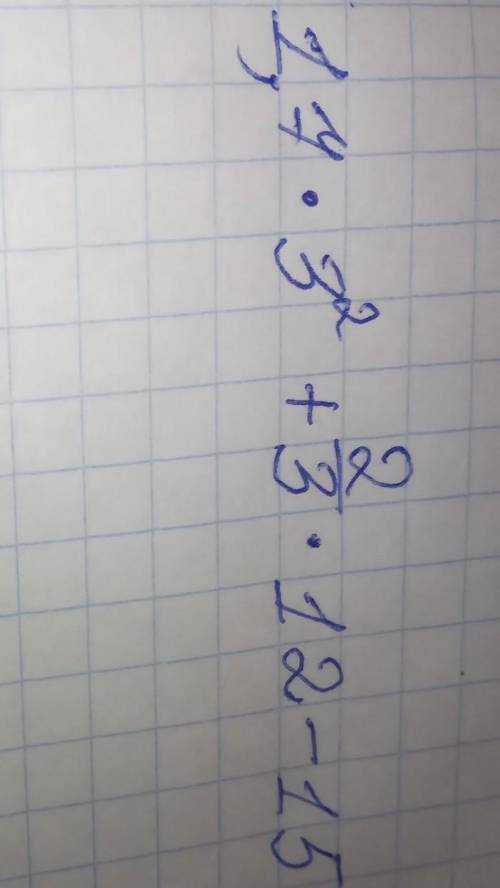 1,4 · 3² + 2/3 · 12 − 15